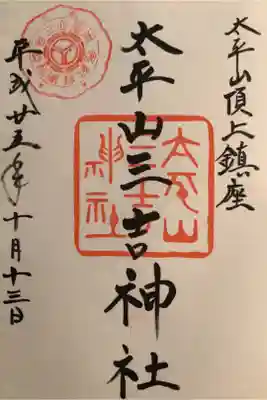 太平山頂上鎮座
太平山三吉神社
平成廿五年十月十三日
太平山
三吉
神社